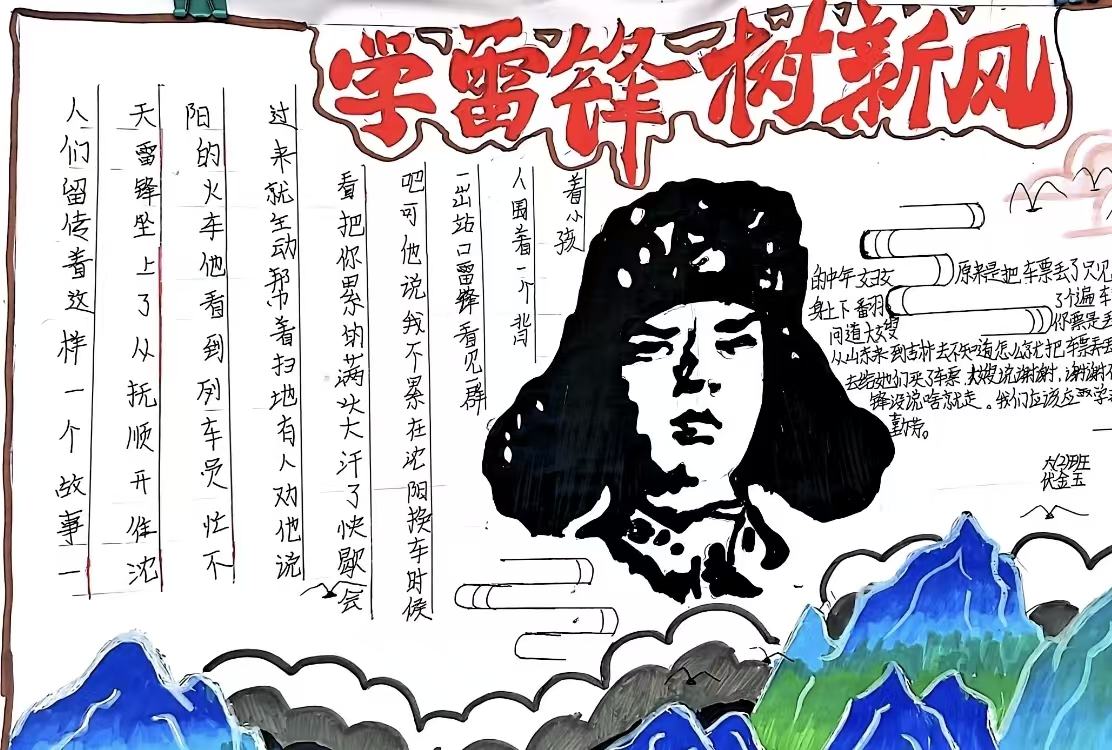 学雷锋 树新风
人们留传着这样一个故事一
天雷锋坐上了从抚顺开往沈
阳的火车他看到列车员忙不
过来就主动帮着扫地有人劝他说
看把你累的满头大汗了快歇会
吧可他说我不累在沈阳换车时候
一出站口雷锋看见一群
人围着一个背
着小孩
的中年妇女 原来是把车票丢了只见
身上下翻 了个遍车
问道大嫂 你票是丢
从山东来到吉林去不知道怎么就把车票弄丢
去给她们买了车票,大嫂说谢谢,谢谢
锋没说啥就走。我们应该应 学
勤劳。
六(2)班
伏金玉